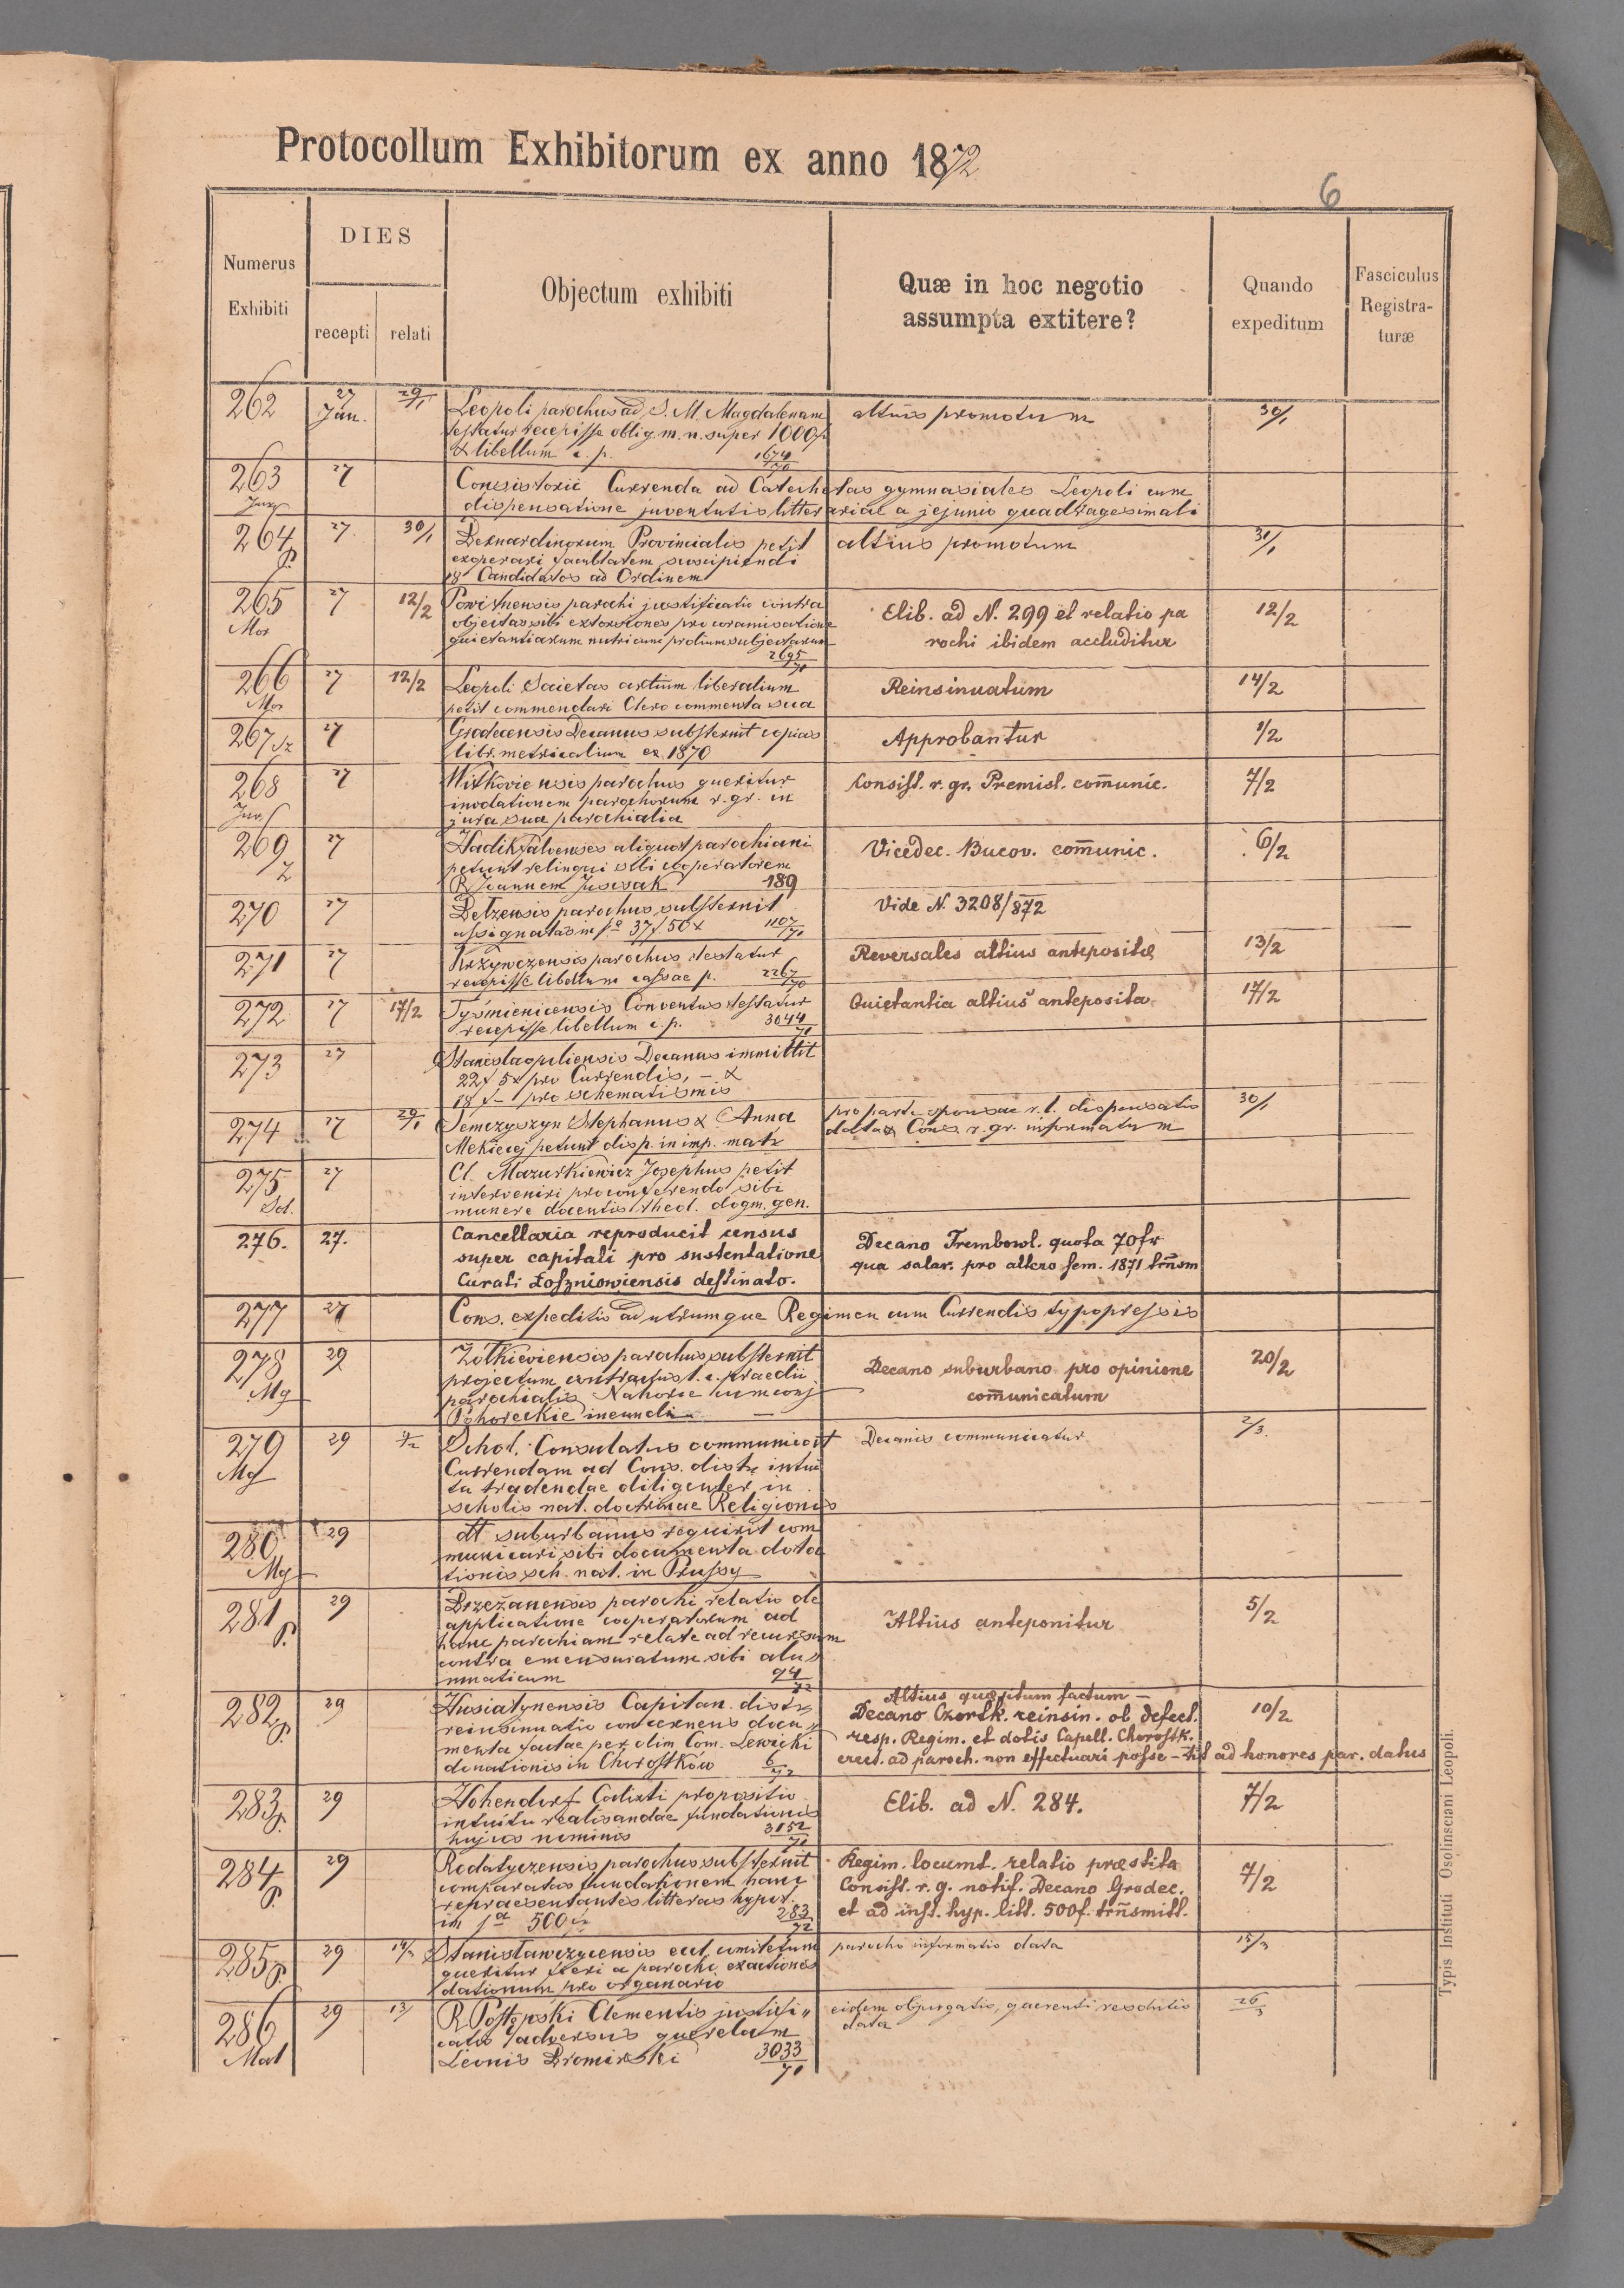 Protocollum Exhibitorum ex anno 1872
6
Numerus Exhibiti
DIES
recepti
relati
Objectum exhibiti
Quæ in hoc negotio
assumpta extitere?
Quando
expeditum
Fasciculus
Registra-
turæ
262 27 Jan. 29/1 Leopoli parochus ad S. M. Magdalenam altius promotum 30/1
testatur recepisse oblig. m. n. super 1000 f
& libellum c. p. 1674/70
263 27 Consistorii Currenda ad Catechetas gymnasiales Leopoli cum
Jur dispensatione juventutis litterariae a jejunio quadragesimali
264 27 30/1 Bernardinorum Provincialis petit altius promotum 31/1
P. exoperari facultatem suscipiendi
18 Candidatos ad Ordinem
265 27 12/2 parochi justificatio contra Elib. ad N. 299 et relatio pa 12/2
Mor objectas sibi extorsiones pro coramisatione rochi ibidem accluditur
quietantiarum nutricum prolium subjectarum
2695/71
266 27 12/2 Leopoli Societas artium liberalium Reinsinuatum 14/2
Mor petit commendari Clero commenta sua
267 Sz 27 Grodecensis Decanus substernit copias Approbantur 1/2
libr. metricalium ex 1870
268 27 Witkoviensis parochus queritur Consist. r. gr. Premisl. comunic. 7/2
Jur parochorum r. gr. in
jura sua parochialia
269 27 Hadikfalvenses aliquot parochiani Vicedec. Bucov. comunic. 6/2
Z petunt relinqui sibi cooperatorem
R Joannem 189
270 27 Belzensis parochus substernit Vide N. 3208/872
assignatas in 37f 50x 1107/71
271 27 Krzywczensis parochus testatur Reversales altius antepositæ 13/2
recepisse libellum cassae p. 2267/70
272 27 17/2 Tyśmienicensis Conventus testatur Quietantia altius anteposita 17/2
recepisse libellum c. p. 3044/71
273 27 Stanislaopoliensis Decanus immittit
22f 5x pro Currendis, – &
18 f – pro schematismis
274 27 29/1 Semczyszyn Stephanus & Anna pro parte sponsae r. l. dispensatio 30/1
petunt disp. in imp. matr data & Cons. r. gr. informatum
275 27 Cl. Mazurkiewicz Josephus petit
Sch. interveniri pro conferendo sibi
munere docentis theol. dogm. gen.
276. 27. Cancellaria reproducit census Decano Trembowl. quota 70fr
super capitali pro sustentatione qua salar. pro altero sem. 1871 trñsm
Curati Łoszniowiensis destinato.
277 27 Cons. expeditio ad utrumque Regimen cum Currendis typopressis
278 29 Żółkieviensis parochus substernit Decano suburbano pro opinione 20/2
Mg projectum contractus l. c. praedii comunicatum
parochialis Nahorce cum conj.
Pohoreckie ineundi –
279 29 Schol. Consulatus communicat Decanis communicatur 2/3.
Mg Currendam ad Cons. distr intui
tu tradendae diligenter in
scholis nat. doctrinae Religionis
280 29 dtt suburbanus requirit com
Mg municari sibi documenta dota
tionis sch. nat. in Prussy
281 29 Brzeżanensis parochi relatio de Altius anteponitur 5/2
P. applicatione cooperatorum ad
hanc parochiam relate ad recursum
contra emensuratum sibi alu„
mnaticum 94/72
282 29 Husiatynensis Capitan. distr Altius quæsitum factum – 10/2
P. reinsinuatio concernens docu„ Decano Czortk. reinsin. ob defect.
menta factae per olim Com. Lewicki resp. Regim. et dotis Capell. Chorostk.
donationis in Chorostków 6/72 erect. ad paroch. non effectuari posse – ad honores par. datus
283 29 Hohendorf Calixti propositio Elib. ad N. 284. 7/2
P. intuitu realisandae fundationis
hujus nominis 3152/71
284 29 Rodatyczensis parochus substernit Regim. locumt. relatio præstita 7/2
P. comparatas fundationem hanc Consist. r. g. notif. Decano Grodec.
repraesentantes litteras hypot. et ad inst. hyp. litt. 500f. trñsmitt.
in 500 283/72
285 29 14/3 Stanisławczycensis eccl. comitetum parocho informatio data 15/3
P. queritur fieri a parocho exactiones
dationum pro organario
286 29 13/ R Postępski Clementis justifi„ eidem objurgatio, querenti resolutio 26/3
Mat catio adversus querelam data
Leonis Bromirski 3033/71
Typis Instituti Ossolinsciani Leopoli.